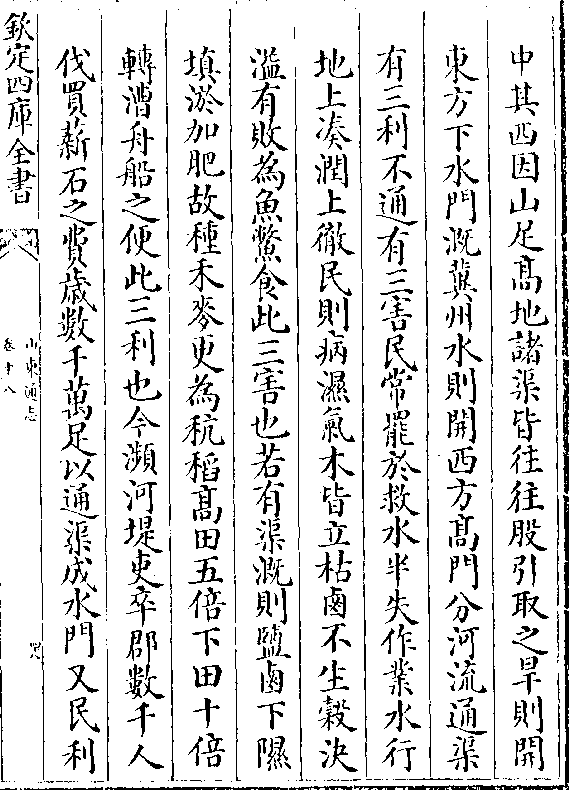 中其西因山足髙地諸渠皆往往股引取之旱則開
東方下水門溉冀州水則開西方髙門分河流通渠
有三利不通有三害民常罷於救水半失作業水行
地上凑潤上徹民則病濕氣木皆立枯鹵不生穀決
溢有敗為魚鱉食此三害也若有渠溉則鹽鹵下隰
填淤加肥故種禾麥更為秔稻髙田五倍下田十倍
轉漕舟船之便此三利也今瀕河堤吏卒郡數千人
伐買薪石之費歲數千萬足以通渠成水門又民利
欽定四庫全書
山東通志
卷十八